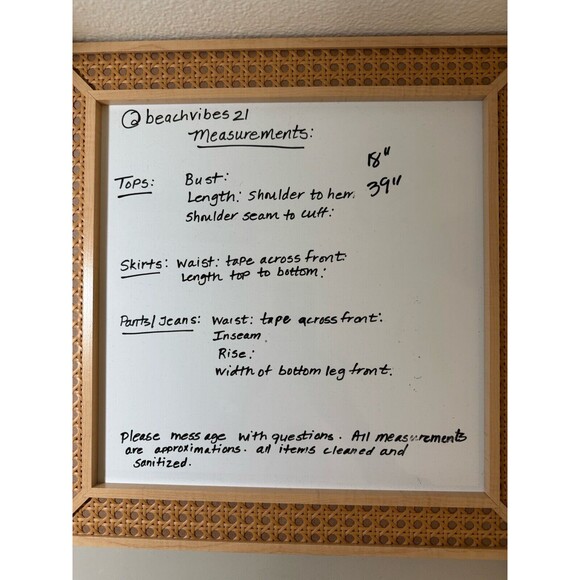 @beachvibes21
Measurements:
Tops: Bust: 18"
Length: Shoulder to hem. 39"
Shoulder seam to cuff:
Skirts: Waist: tape across front:
Length top to bottom:
Pants/Jeans: Waist: tape across front:
Inseam.
Rise:
Width of bottom leg front.
Please message with questions. All measurements
are approximations. all items cleaned and
sanitized.